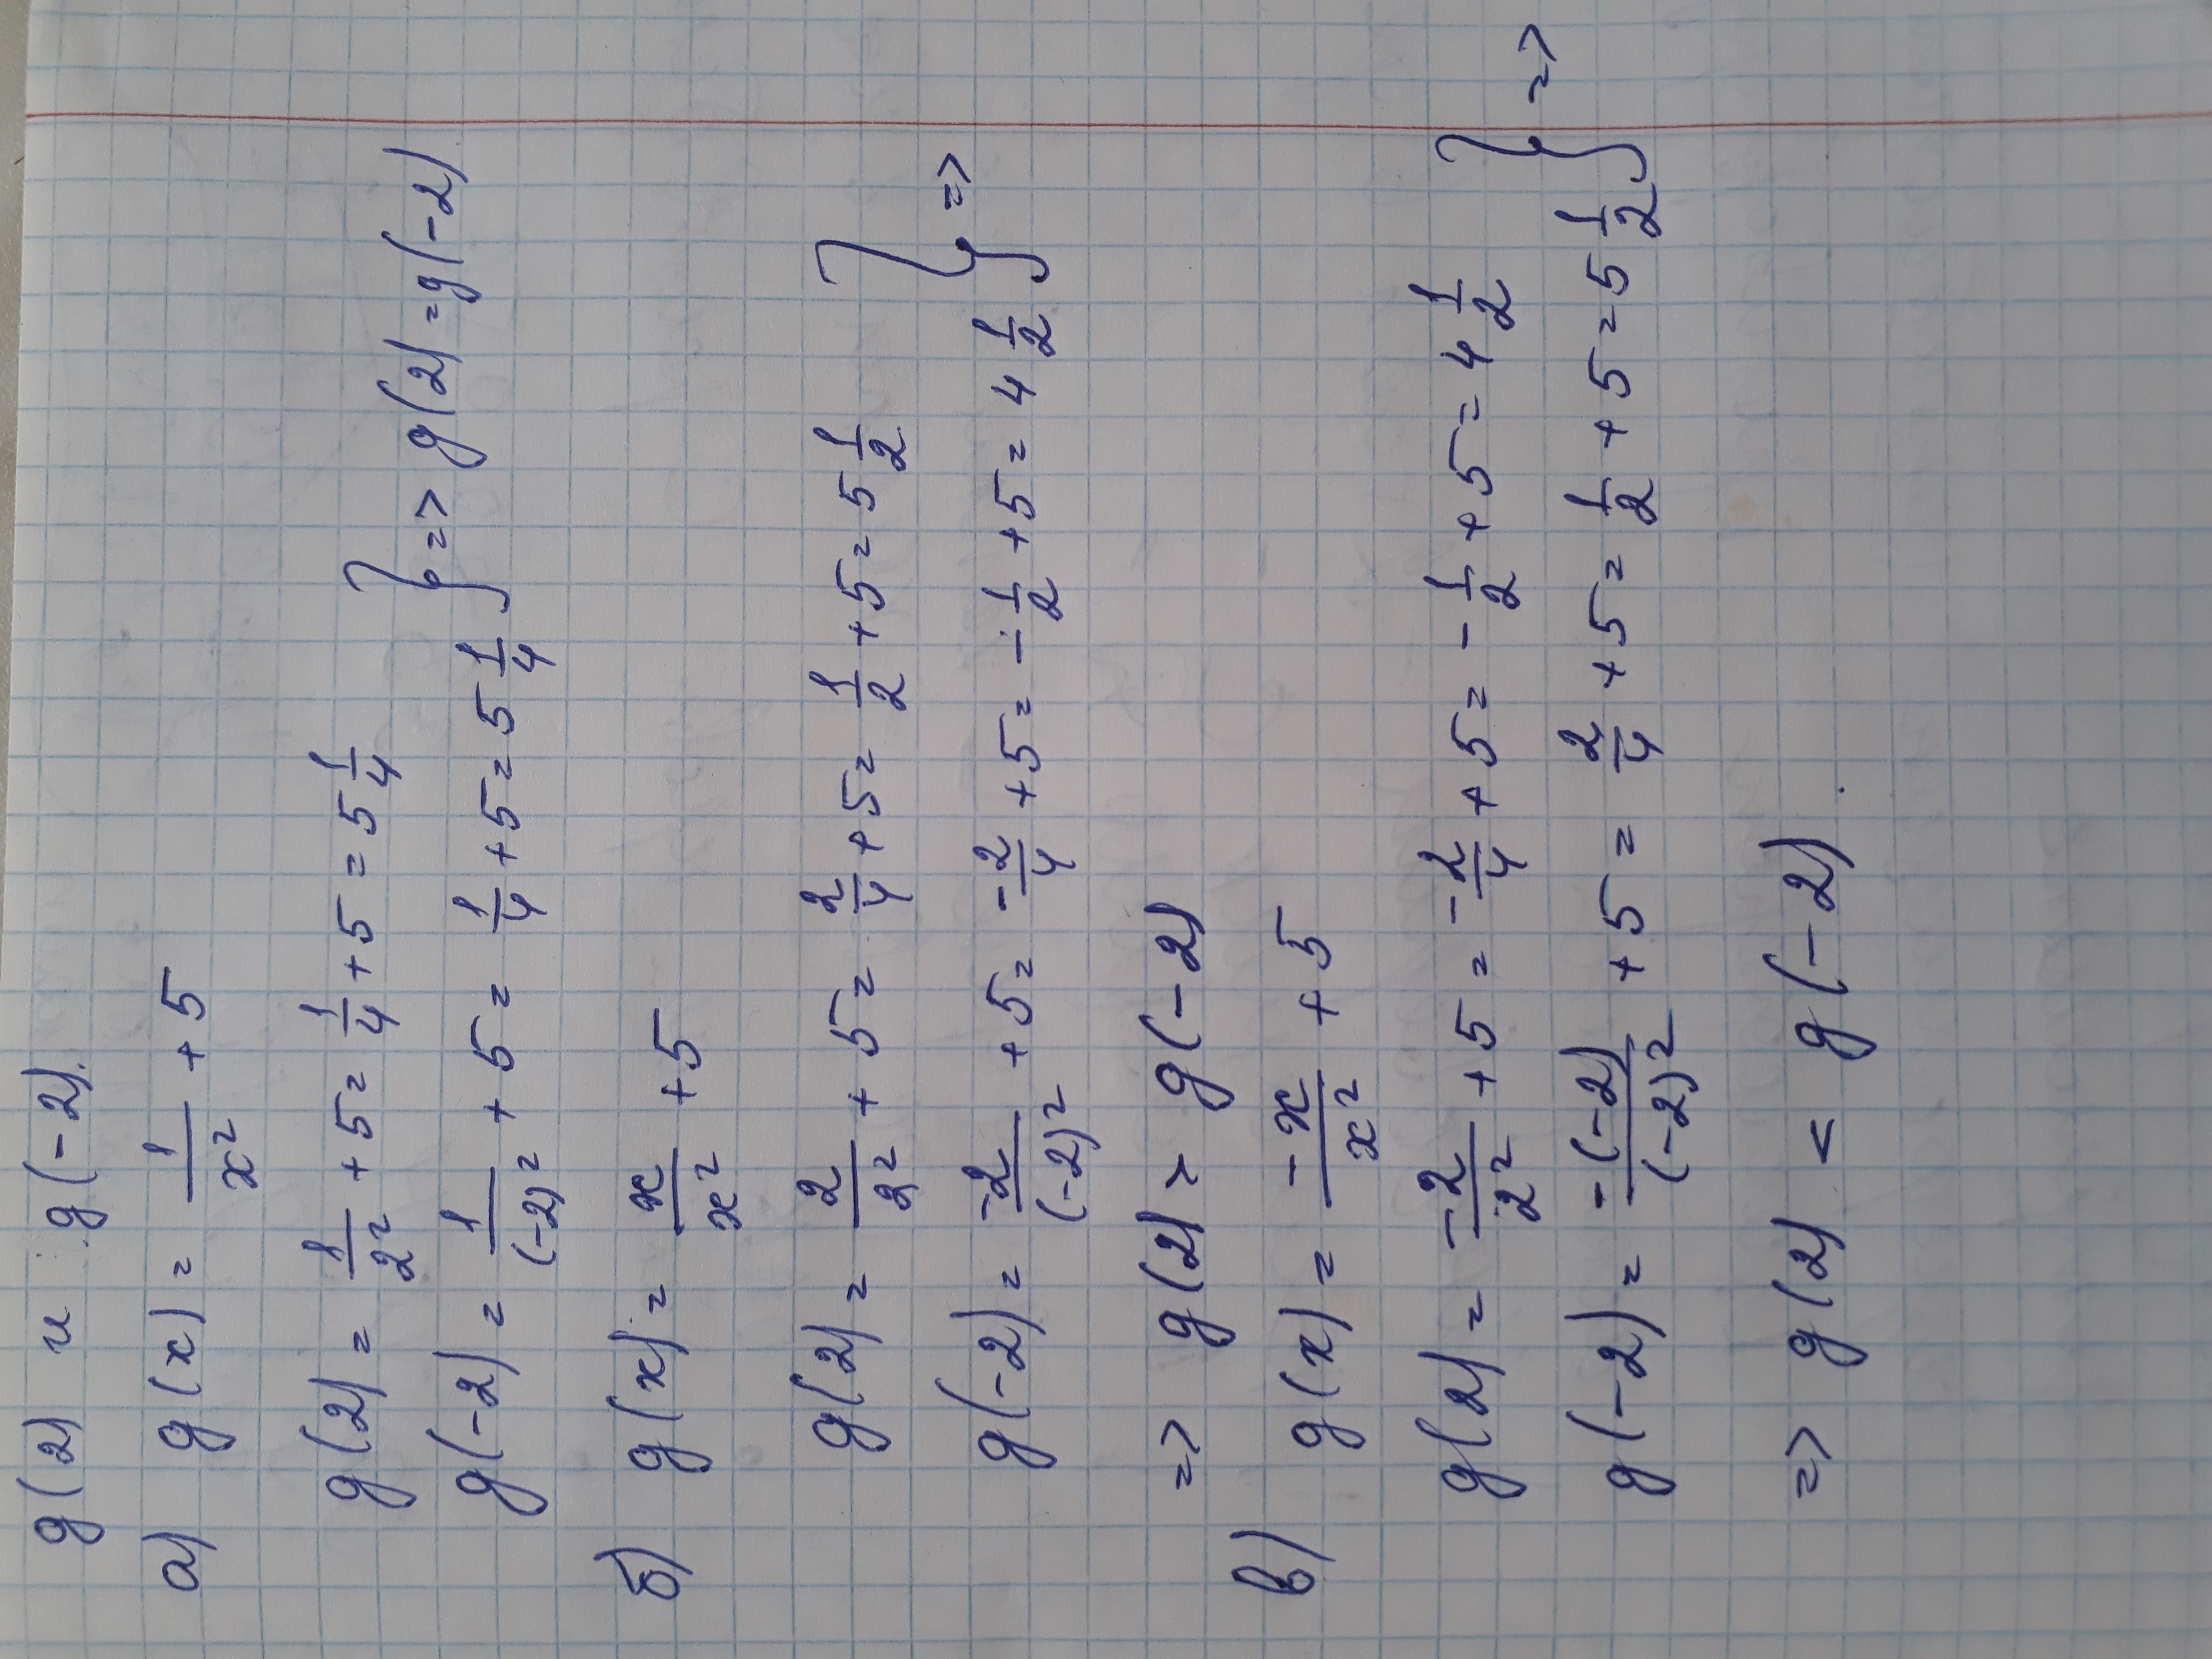 g(2) и g(-2).
а) g(x) = 1/x² + 5
g(2) = 1/2² + 5 = 1/4 + 5 = 5 1/4
g(-2) = 1/(-2)² + 5 = 1/4 + 5 = 5 1/4 } => g(2) = g(-2)
б) g(x) = x/x² + 5
g(2) = 2/2² + 5 = 2/4 + 5 = 1/2 + 5 = 5 1/2
g(-2) = -2/(-2)² + 5 = -2/4 + 5 = -1/2 + 5 = 4 1/2 } =>
=> g(2) > g(-2)
в) g(x) = -x/x² + 5
g(2) = -2/2² + 5 = -2/4 + 5 = -1/2 + 5 = 4 1/2
g(-2) = -(-2)/(-2)² + 5 = 2/4 + 5 = 1/2 + 5 = 5 1/2 } =>
=> g(2) < g(-2).